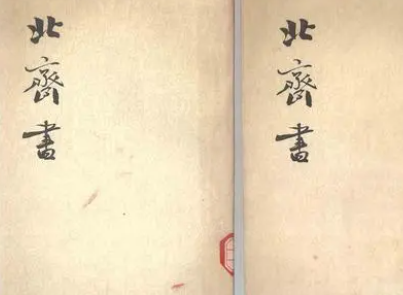 北齊書
北齊書